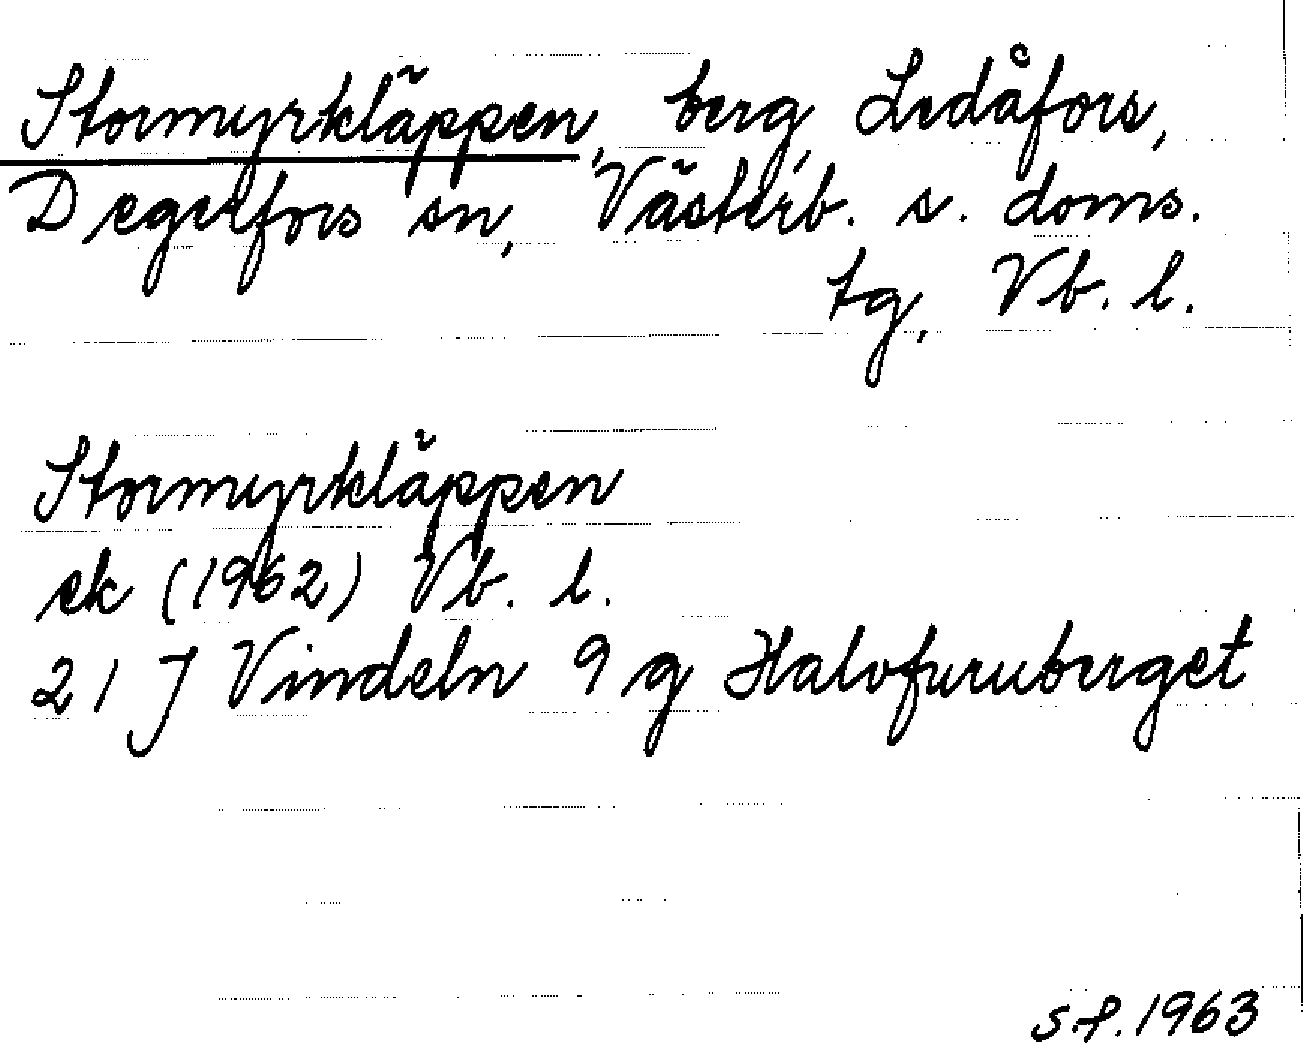 Stormyrkläppen, berg, Ledåfors,
Degerfors sn, Västerb. s. doms.
tg, Vb. l.
Stormyrkläppen
ek (1962) Vb. l.
21 J Vindeln 9 g Halvfuruberget
1963